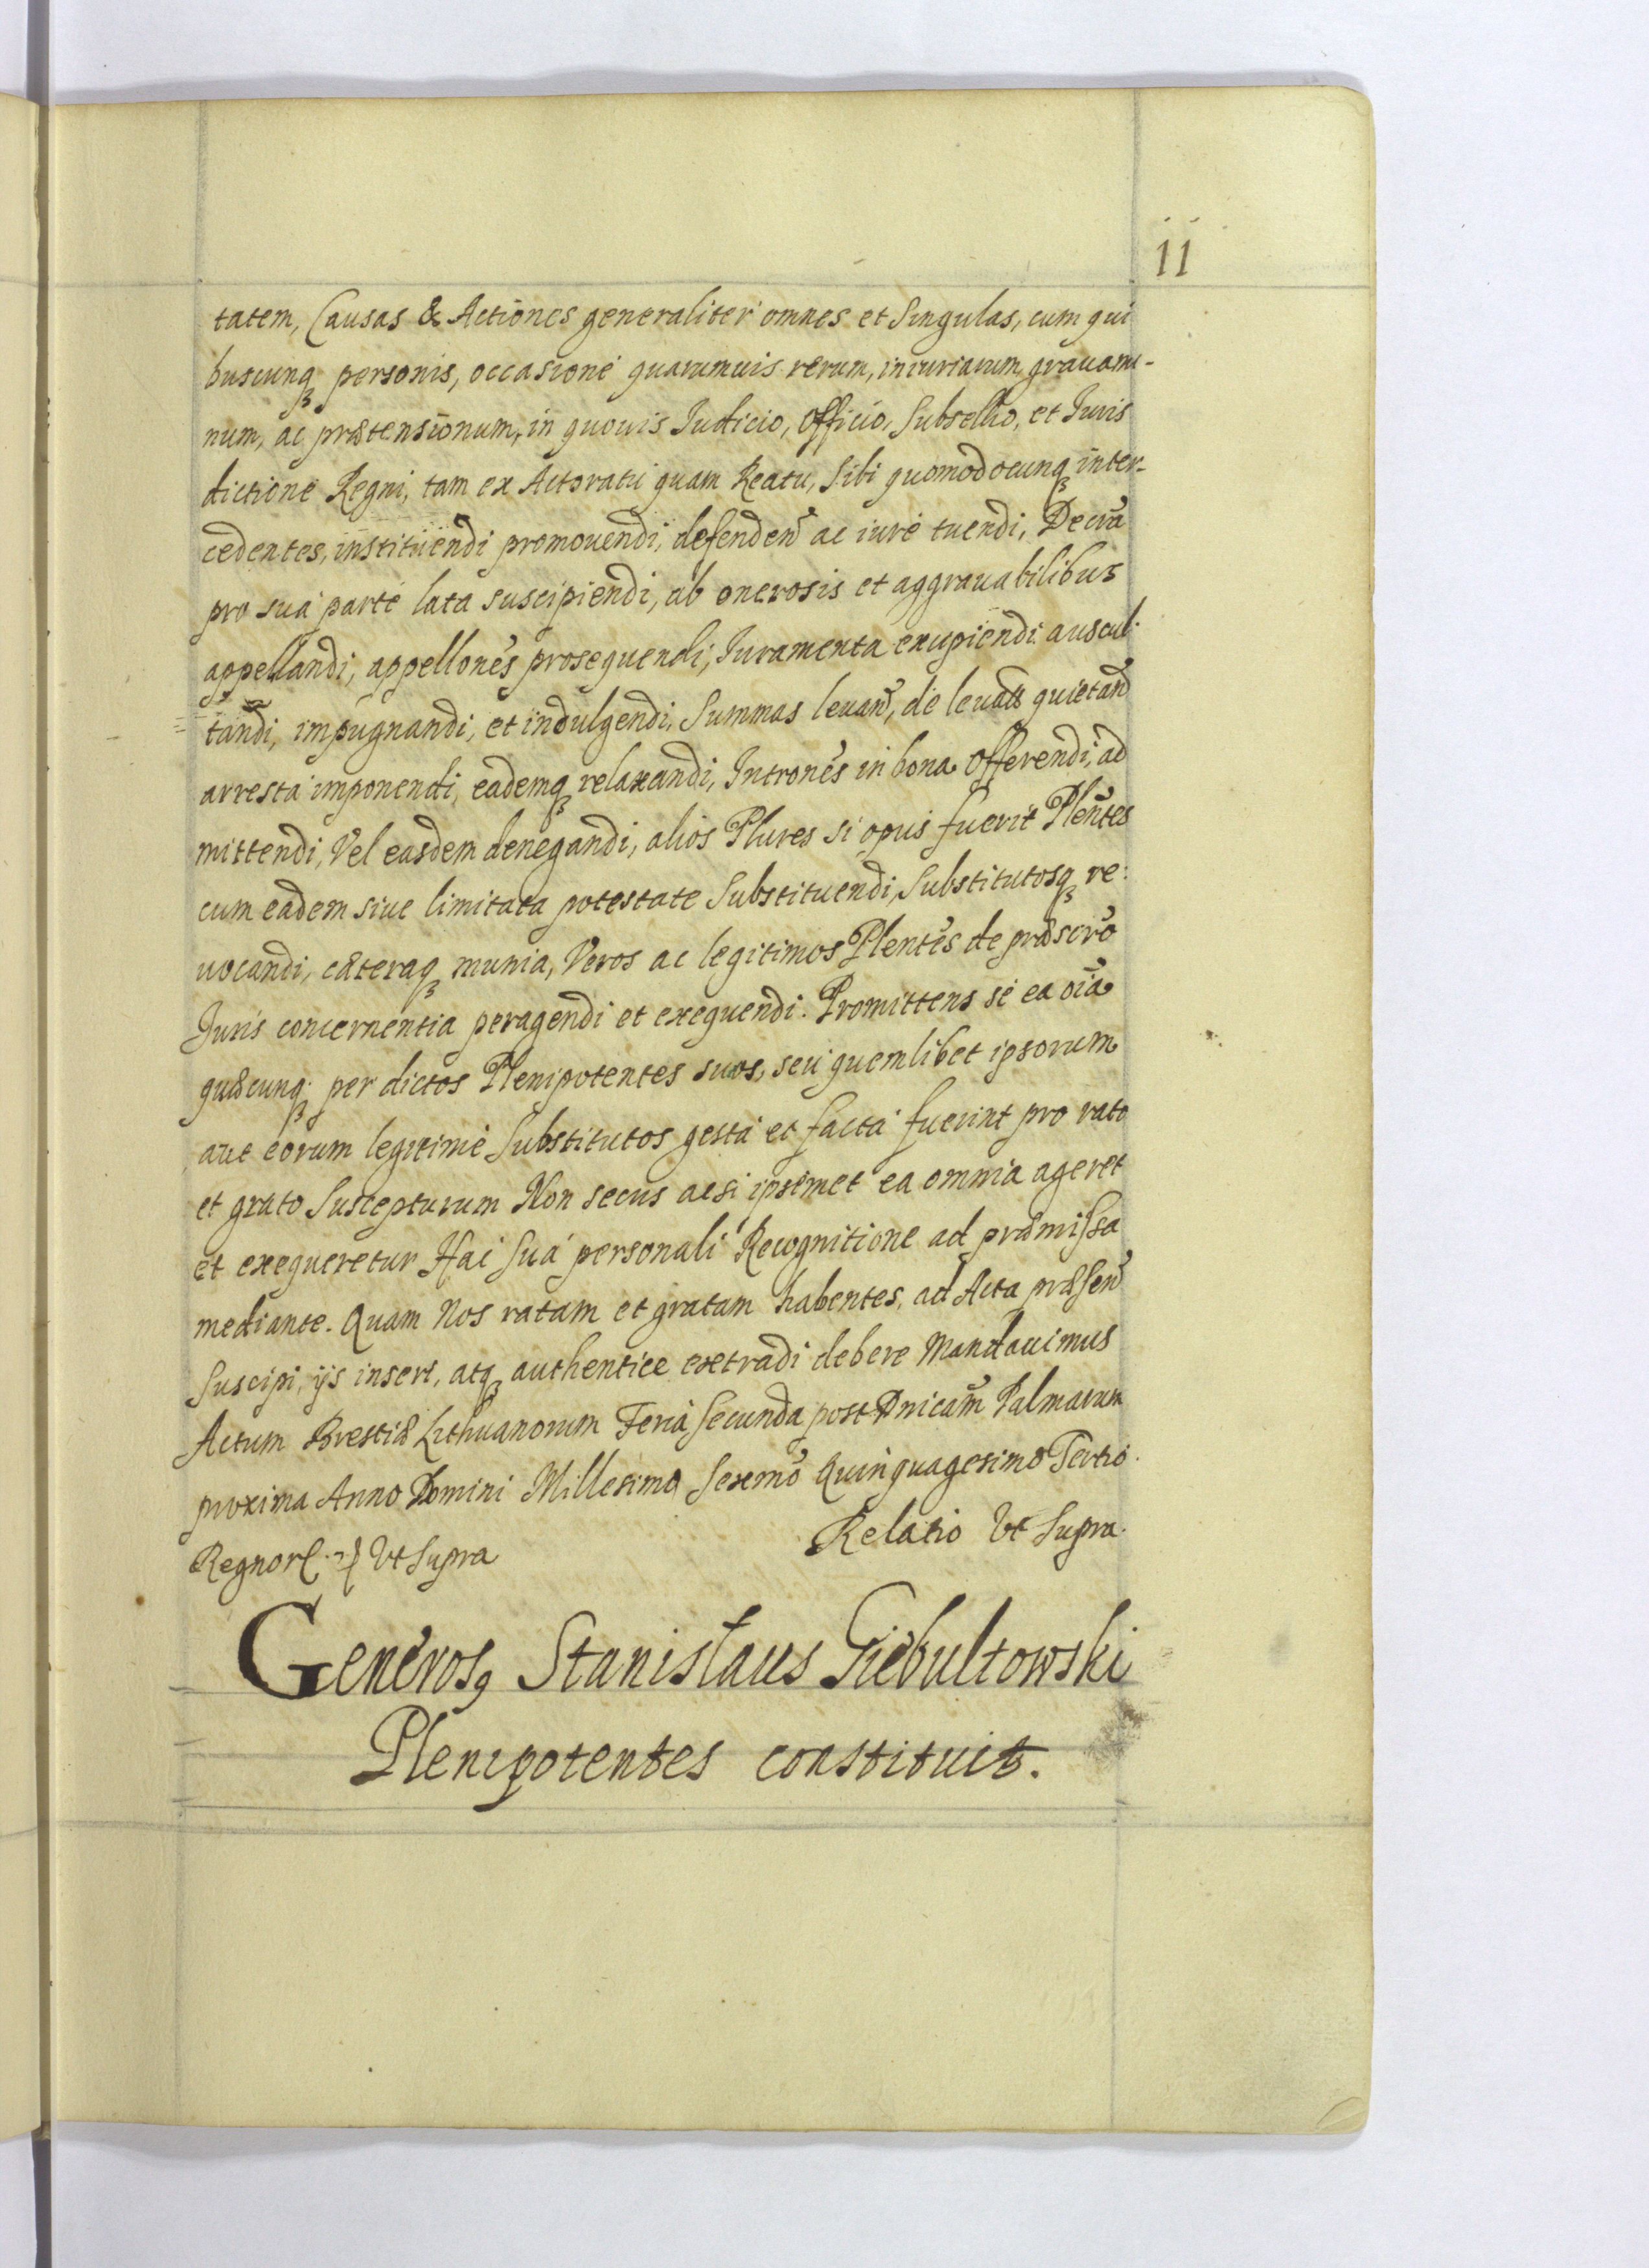 11
tatem, Causas & Actiones generaliter omnes et Singulas, cum qui
buscunqȝ personis, occasione quarumuis rerum, iniuriarum, grauami-
num, ac prætensionum, in quouis Judicio, Officio, Subsellio, et Juris
dictione Regni, tam ex Actoratu quam Reatu, Sibi quomodocunqȝ inter-
cedentes, instituendi promouendi, defendeñ ac iure tuendi, Decrã
pro sua parte lata suscipiendi, ab onerosis et aggrauabilibus
appellandi, appellones prosequendi, Juramenta excipiendi auscul-
tandi, impugnandi, et indulgendi, Summas leuañ, de leuatis quietand
arresta imponendi, eademqȝ relaxandi, Intrones in bona Offerendi, ad
mittendi, Vel easdem denegandi, alios Plures si opus fuerit Plentes
cum eadem siue limitata potestate Substituendi, Substitutosqȝ re:
uocandi, cæteraqȝ munia, Veros ac legitimos Plentes de præscrõ
Juris concernentia peragendi et exequendi. Promittens se ea oĩa
quæcunqȝ per dictos Plenipotentes suos, seu quemlibet ipsorum
aut eorum legitime Substitutos gesta et facta fuerint pro rato
et grato Suscepturum Non secus acsi ipsemet ea omnia ageret
et exequeretur Hac Sua personali Recognitione ad præmissa
mediante. Quam Nos ratam et gratam habentes, ad Acta præseñ
Suscipi, ijs inseri, atqȝ authentice extradi debere Mandauimus
Actum Brestiæ Lithuanorum Feria Secunda post Dnicam Palmarum
proxima Anno Domini Millesimo Sexmõ Quinquagesimo Tertio.
Regnor Vt Supra Relatio Vt Supra.
Generosꝰ Stanislaus Giebultowski
Plenipotentes constituit.